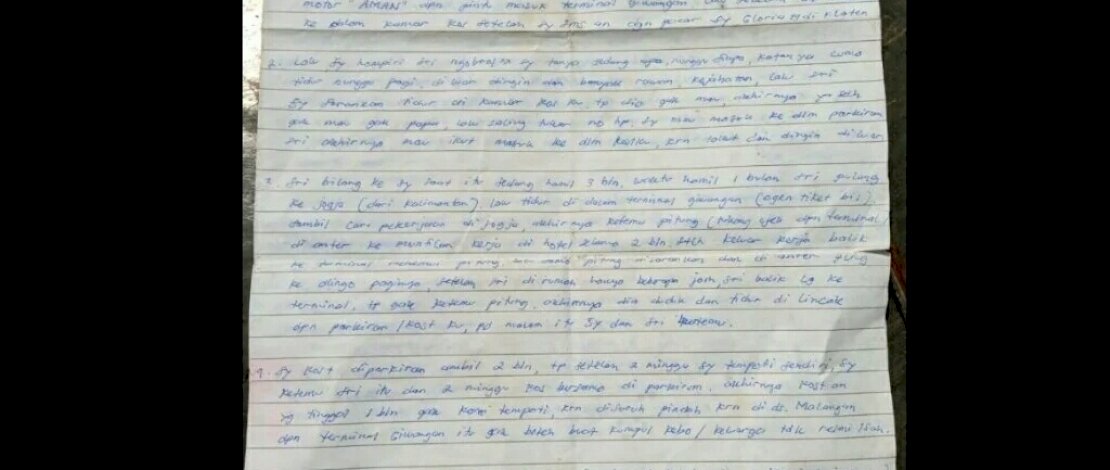 motor "AMAN" dpn pintu masuk terminal giwangan
ke dalam kamar kos setelah sy sms an dgn pacar sy Gloria M di Klaten
2. Lalu sy hampiri sri ngobrol sy tanya sedang apa, nunggu siapa, katanya cuma
tidur nunggu pagi, di luar dingin dan banyak rawan kejahatan, lalu sri
sy sarankan tidur di kamar kos ku, tp dia gak mau, akhirnya ya
gak mau gak papa, lalu saling tukar no hp. Sy mau masuk ke dlm parkiran
sri akhirnya mau ikut masuk ke dlm kosku, krn takut dan dingin diluar
3. Sri bilang ke sy saat itu sedang hamil 3 bln, waktu hamil 1 bulan sri pulang
ke jogja (dari Kalimantan), lalu tidur di dalam terminal giwangan (agen tiket bis)
sambil cari pekerjaan di jogja, akhirnya ketemu pitung (tukang ojek dpn terminal)
di anter ke muntilan kerja di hotel selama 2 bln stlh keluar kerja balik
ke terminal menemui pitung, sama pitung dan di anter pulang
ke dlingo paginya, setelah sri di rumah hanya beberapa jam, sri balik lg ke
terminal, tp gak ketemu pitung, akhirnya dia duduk dan tidur di lincak
dpn parkiran / kost ku, pd malam itu sy dan sri ketemu.
4. Sy kost diparkiran ambil 2 bln, tp setelah 2 minggu sy tempati sendiri, sy
ketemu sri itu dan 2 minggu kos bersama di parkiran, akhirnya kost an
yg tinggal 1 bln gak kami tempati, krn disuruh pindah krn di ds. Malangan
dpn terminal Giwangan itu gak boleh buat kumpul kebo / keluarga tdk resmi /sah.